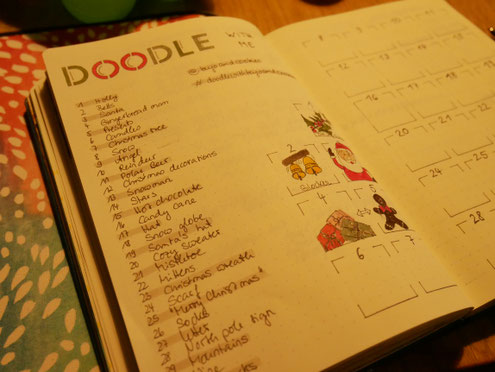 DOODLE WITH ME
1 Holly
2 Bells
3 Santa
4 Gingerbread man
5 Presents
6 Candles
7 Christmas tree
8 Snow
9 Angel
10 Reindeer
11 Polar Bear
12 Christmas decorations
13 Snowman
14 Stars
15 Hot chocolate
16 Candy cane
17 Hat
18 Snow globe
19 Santa's hat
20 Cozy sweater
21 Mistletoe
22 Mittens
23 Christmas wreath
24 Scarf
25 "Merry Christmas"
26 Socks
27 Letter
28 North pole sign
29 Mountains
1
2
4
5
6
7
8
9
10
11
12
13
16
17
18
20
21
24
25
28